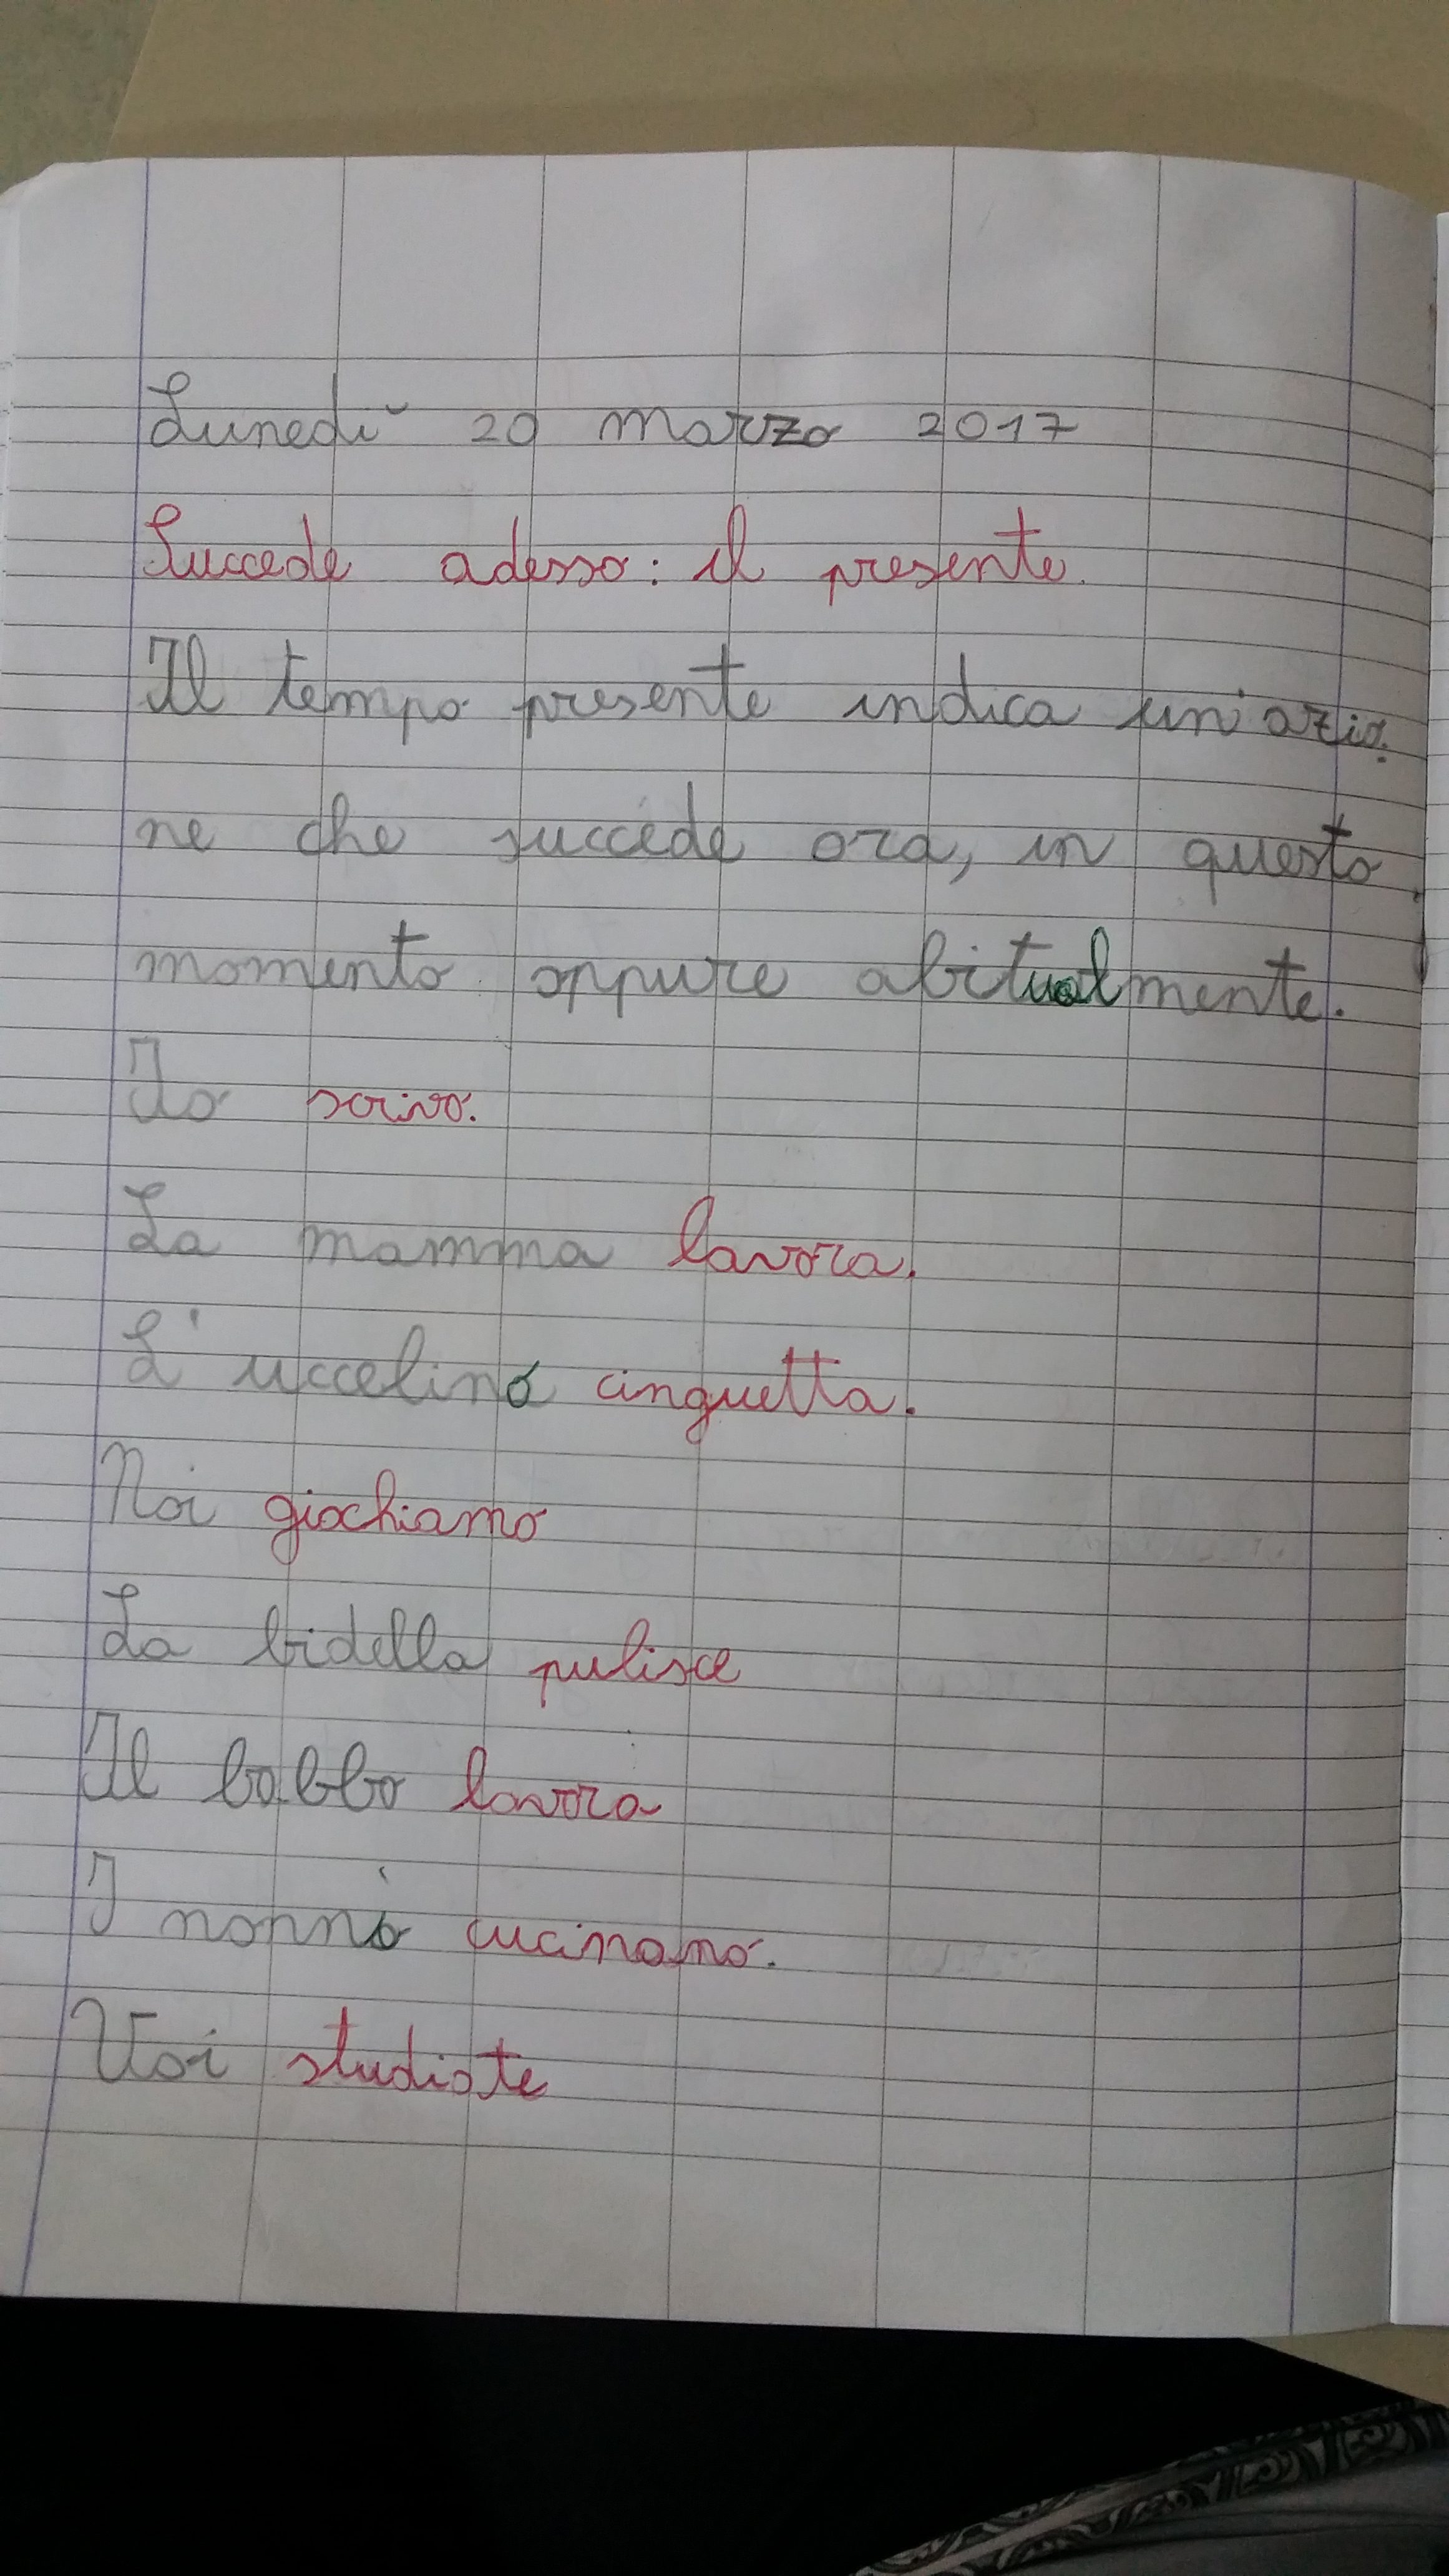 Lunedì 20 marzo 2017
Succede adesso: il presente.
Il tempo presente indica un'azio-
ne che succede ora, in questo
momento oppure abitualmente.
Io scrivo.
La mamma lavora.
L'uccelino cinguetta.
Noi giochiamo
La bidella pulisce
Il babbo lavora
I nonni cucinano.
Voi studiate